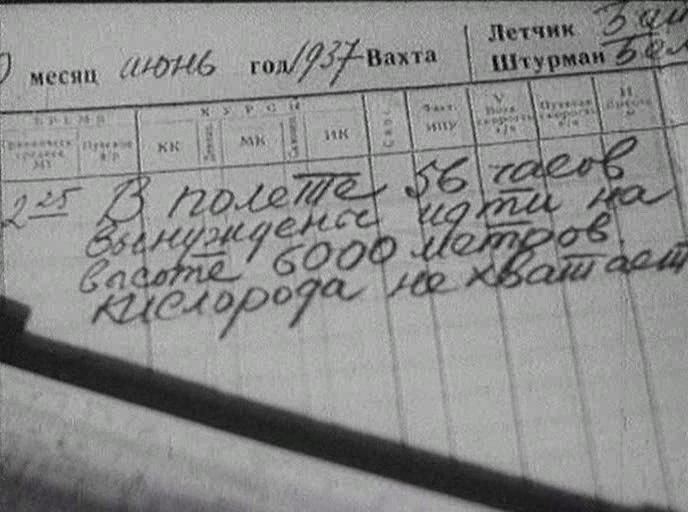 месяц июнь год 1937 Вахта
Летчик
Штурман
ВРЕМЯ
КУРСЫ
КК
МК
ИК
Факт.
ИПУ
Путевая
скорость
2 25 В полете 56 часов
вынуждены идти на
высоте 6000 метров.
кислорода не хватает